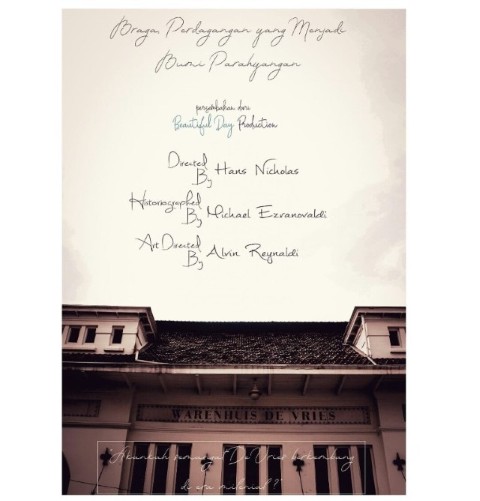 Braga, Perdagangan yang Menjadi
Bumi Parahyangan
persembahan dari
Beautiful Day Production
Directed
By Hans Nicholas
Historiographed
By Michael Ezranovaldi
Art Directed
By Alvin Reynaldi
WARENHUIS DE VRIES
Akankah semangat De Vries berkembang
di era milenial?"